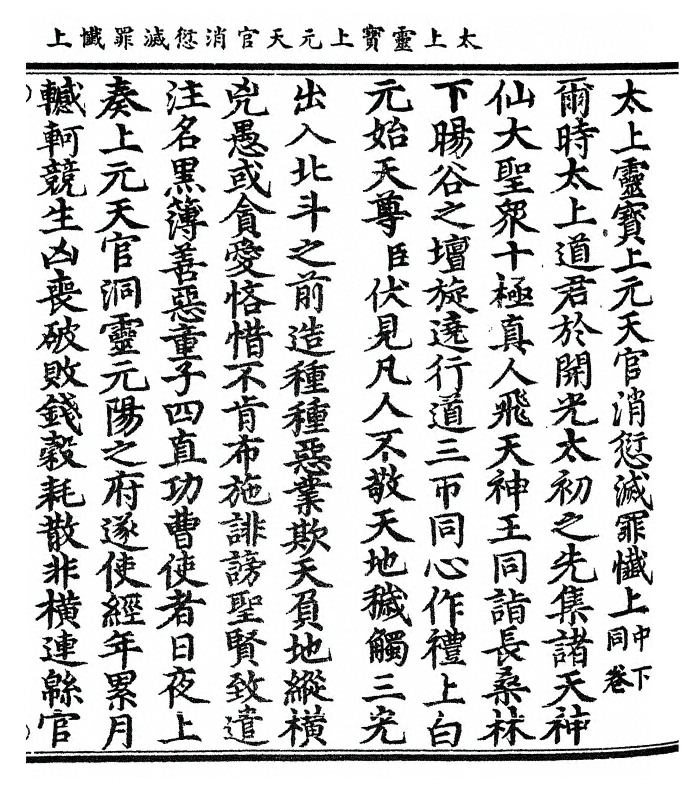 太上靈寶上元天官消愆滅罪懺上
太上靈寶上元天官消愆滅罪懺上中下同卷
爾時太上道君於開光太初之先集諸天神
仙大聖衆十極真人飛天神王同詣長桑林
下暘谷之壇旋遶行道三帀同心作禮上白
元始天尊臣伏見凡人不敬天地穢觸三光
出入北斗之前造種種惡業欺天負地縱橫
兇愚或貪愛悋惜不肯布施誹謗聖賢致遣
注名黑簿善惡童子四直功曹使者日夜上
奏上元天官洞靈元陽之府遂使經年累月
轗軻競生凶喪破敗錢穀耗散非橫連緜官